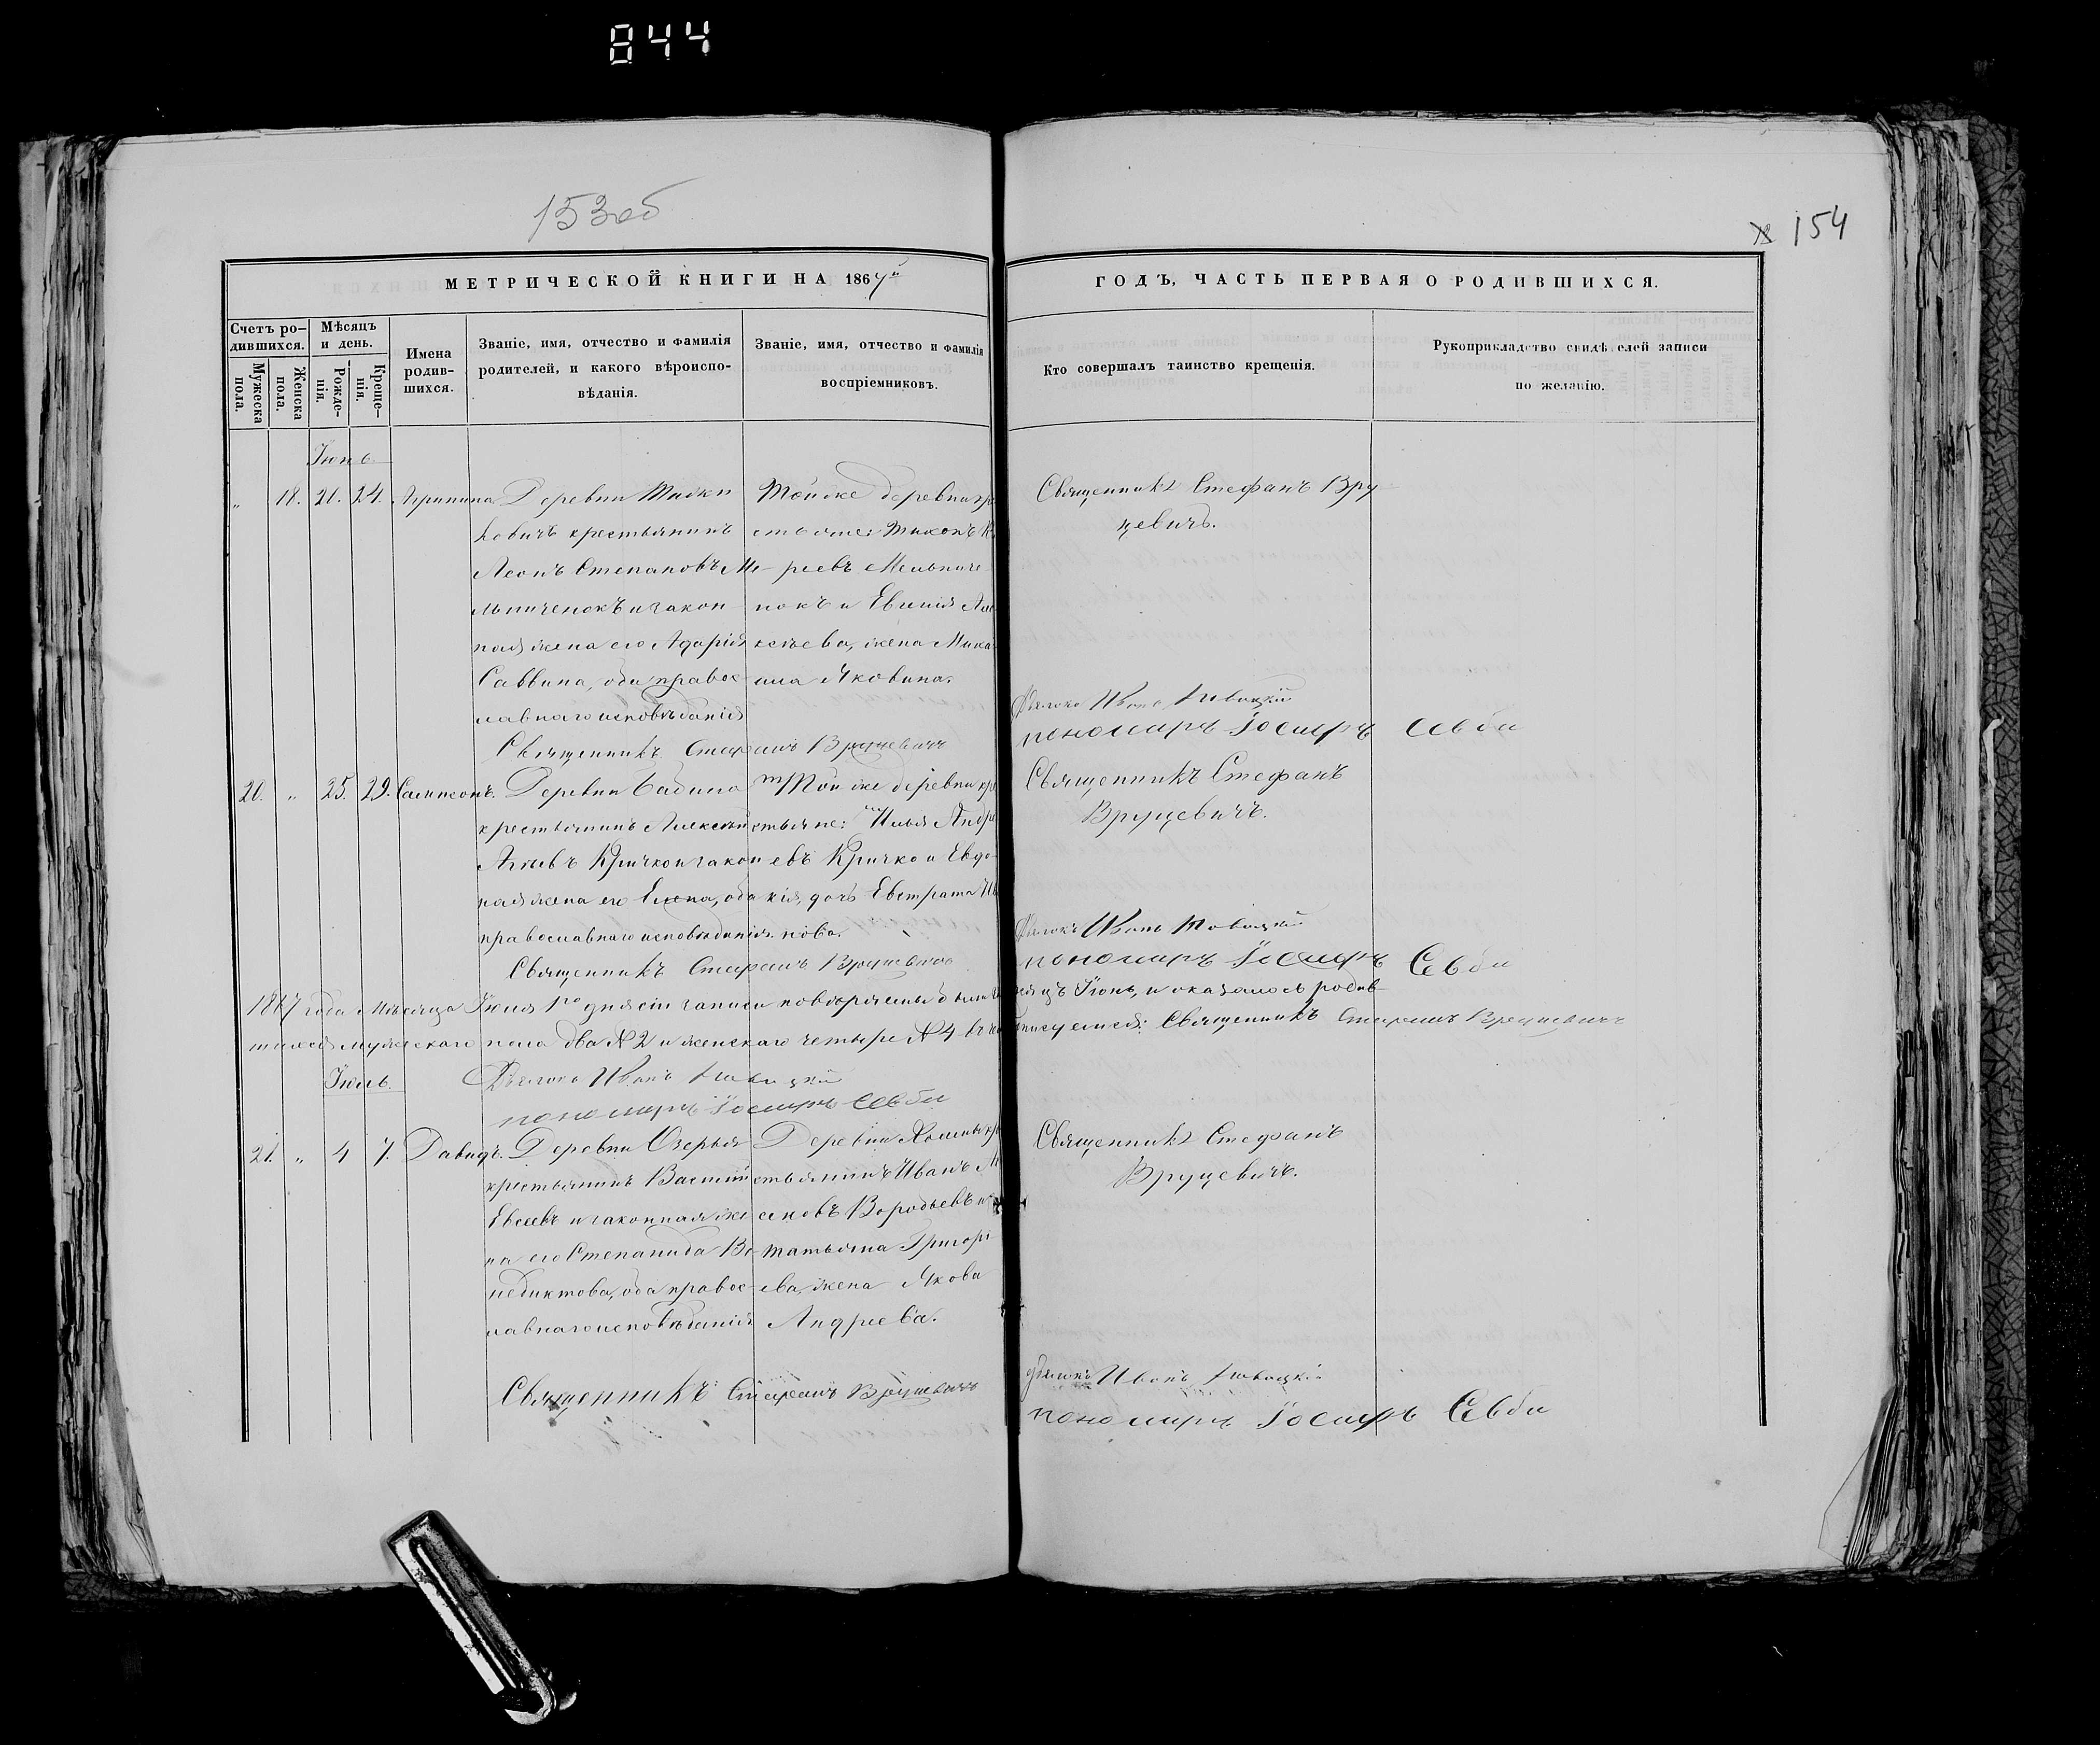 844
153об
154
МЕТРИЧЕСКОЙ КНИГИ НА 1867й
ГОДЪ, ЧАСТЬ ПЕРВАЯ О РОДИВШИХСЯ.
Счетъ ро-
дившихся.
Мужеска
пола.
Женска
пола.
Мѣсяцъ
и день.
Рожде-
нія.
Креще-
нія.
Имена
родив-
шихся.
Званіе, имя, отчество и фамилія
родителей, и какого вѣроиспо-
вѣданія.
Званіе, имя, отчество и фамилія
воспріемниковъ.
Кто совершалъ таинство крещенія.
Рукоприкладство свидѣ елей записи
по желанію.
Іюнь
„ 18. 20. 24. Агрипина
Деревни
ковичъ крестьянинъ
Леонъ Степановъ Ме-
льниченокъ и закон-
ная жена его Адарія
Саввина, оба правос-
лавнаго исповѣданія
Священникъ Стефанъ Вруцевичъ
Тойже деревни кре
стьяне: Тихонъ
реевъ Мельниче
нокъ и Евгенія Але
ксѣева, жена Миха
ила Яковина.
Священникъ Стефанъ Вру-
цевичъ.
Дьячокъ Иванъ
пономаръ Іосифъ
20. „ 25. 29. Сампсонъ.
Деревни
крестьянинъ Алексѣй
Кричко и закон
ная жена его Елена, оба
православнаго исповѣданія.
Священникъ Стефанъ Вруцевичъ
Тойже деревни кре
стьяне: Илья Андре
евъ Кричко и Евдо-
кія, дочь Евстрата
нова.
Священникъ Стефанъ
Вруцевичъ.
Дьячокъ Иванъ
пономаръ Іосифъ
1867 года Мѣсяца Іюля 1го дня сіи записи повѣряемы были за мѣсяцъ Іюнь, и оказалось родив-
шихся мужескаго пола два № 2 и женскаго четыре № 4 въ чемъ подписуемся: Священникъ Стефанъ Вруцевичъ
Дьячокъ Иванъ
пономаръ Іосифъ
Іюль.
21. „ 4 7. Давидъ.
Деревни Озерья
крестьянинъ Василій
Евсеевъ и законная же
на его Степанида Ве-
недиктова, оба правос-
лавнаго исповѣданія
Священникъ Стефанъ Вруцевичъ
Деревни кре
стьянинъ Иванъ
сеновъ Воробьевъ и
Татьяна Григорі
ева, жена Якова
Андреева.
Священникъ Стефанъ
Вруцевичъ.
Дьячокъ Иванъ
пономаръ Іосифъ